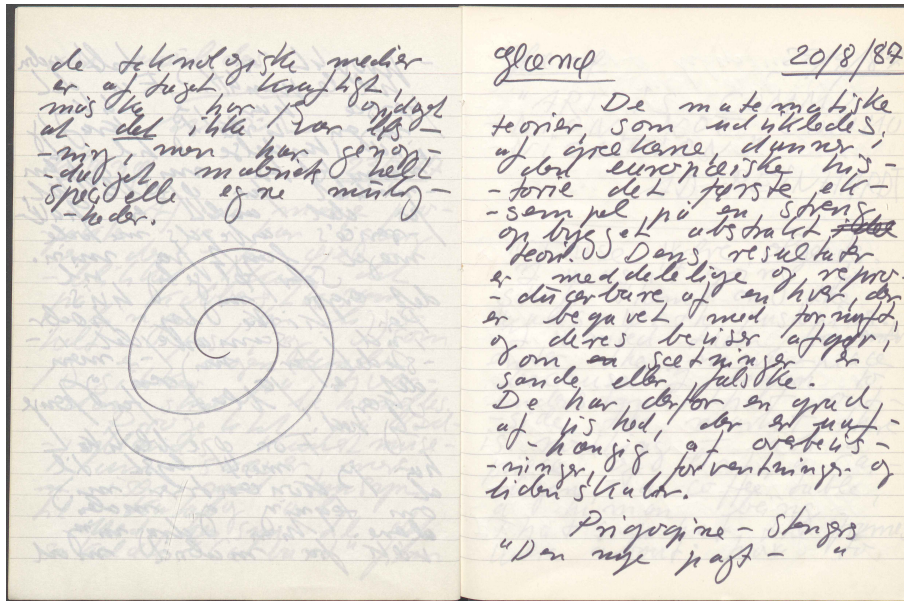 de teknologiske medier
er af taget kraftigt,
måske har opdaget
at det ikke var løs-
-ning, men har
helt
specielle egne mulig-
-heder.
Gland 20/8/87
De matematiske
teorier, som udvikledes,
af grækerne, danner i
den europæiske his-
-torie det første ek-
-sempel på en streng
opbygget abstrakt
teori. Dens resultater
er meddelelige og repro-
-ducerbare af en hver, der
er begavet med fornuft,
og deres beviser afgør,
om sætninger er
sande eller falske.
De har derfor en grad
af vished, der er uaf-
-hængig af overbevis-
-ninger, forventninger og
lidenskaber.
Prigogine - Stengers
"Den nye pagt - "